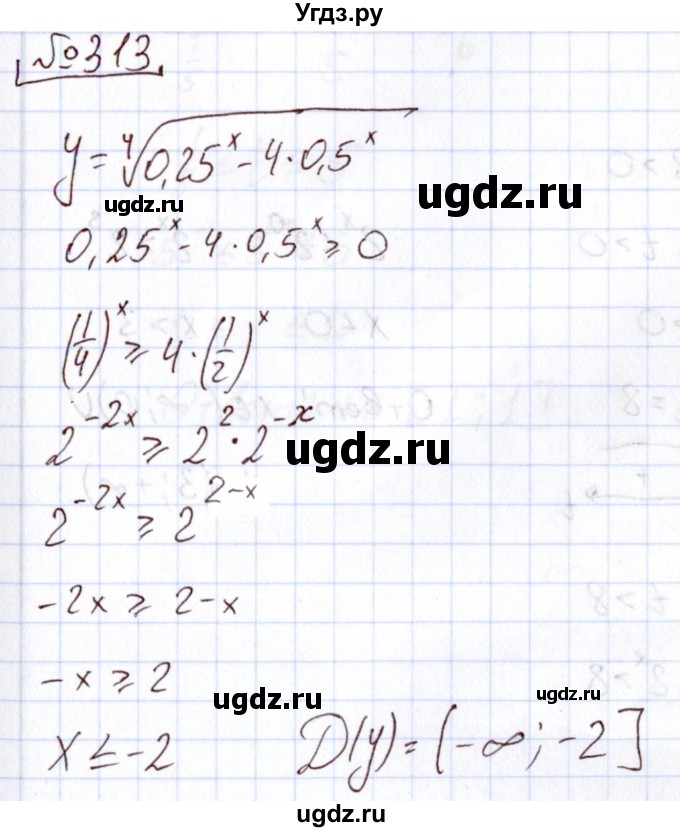 Угдз.ру
№313
y = ⁴√(0,25ˣ - 4·0,5ˣ)
ugdz.ru
ugdz.ru
0,25ˣ - 4·0,5ˣ ≥ 0
(1/4)ˣ ≥ 4·(1/2)ˣ
2^(-2x) ≥ 2²·2^(-x)
ugdz.ru
2^(-2x) ≥ 2^(2-x)
-2x ≥ 2-x
-x ≥ 2
ugdz.ru
ugdz.ru
x ≤ -2
D(y) = (-∞; -2]
ugdz.ru